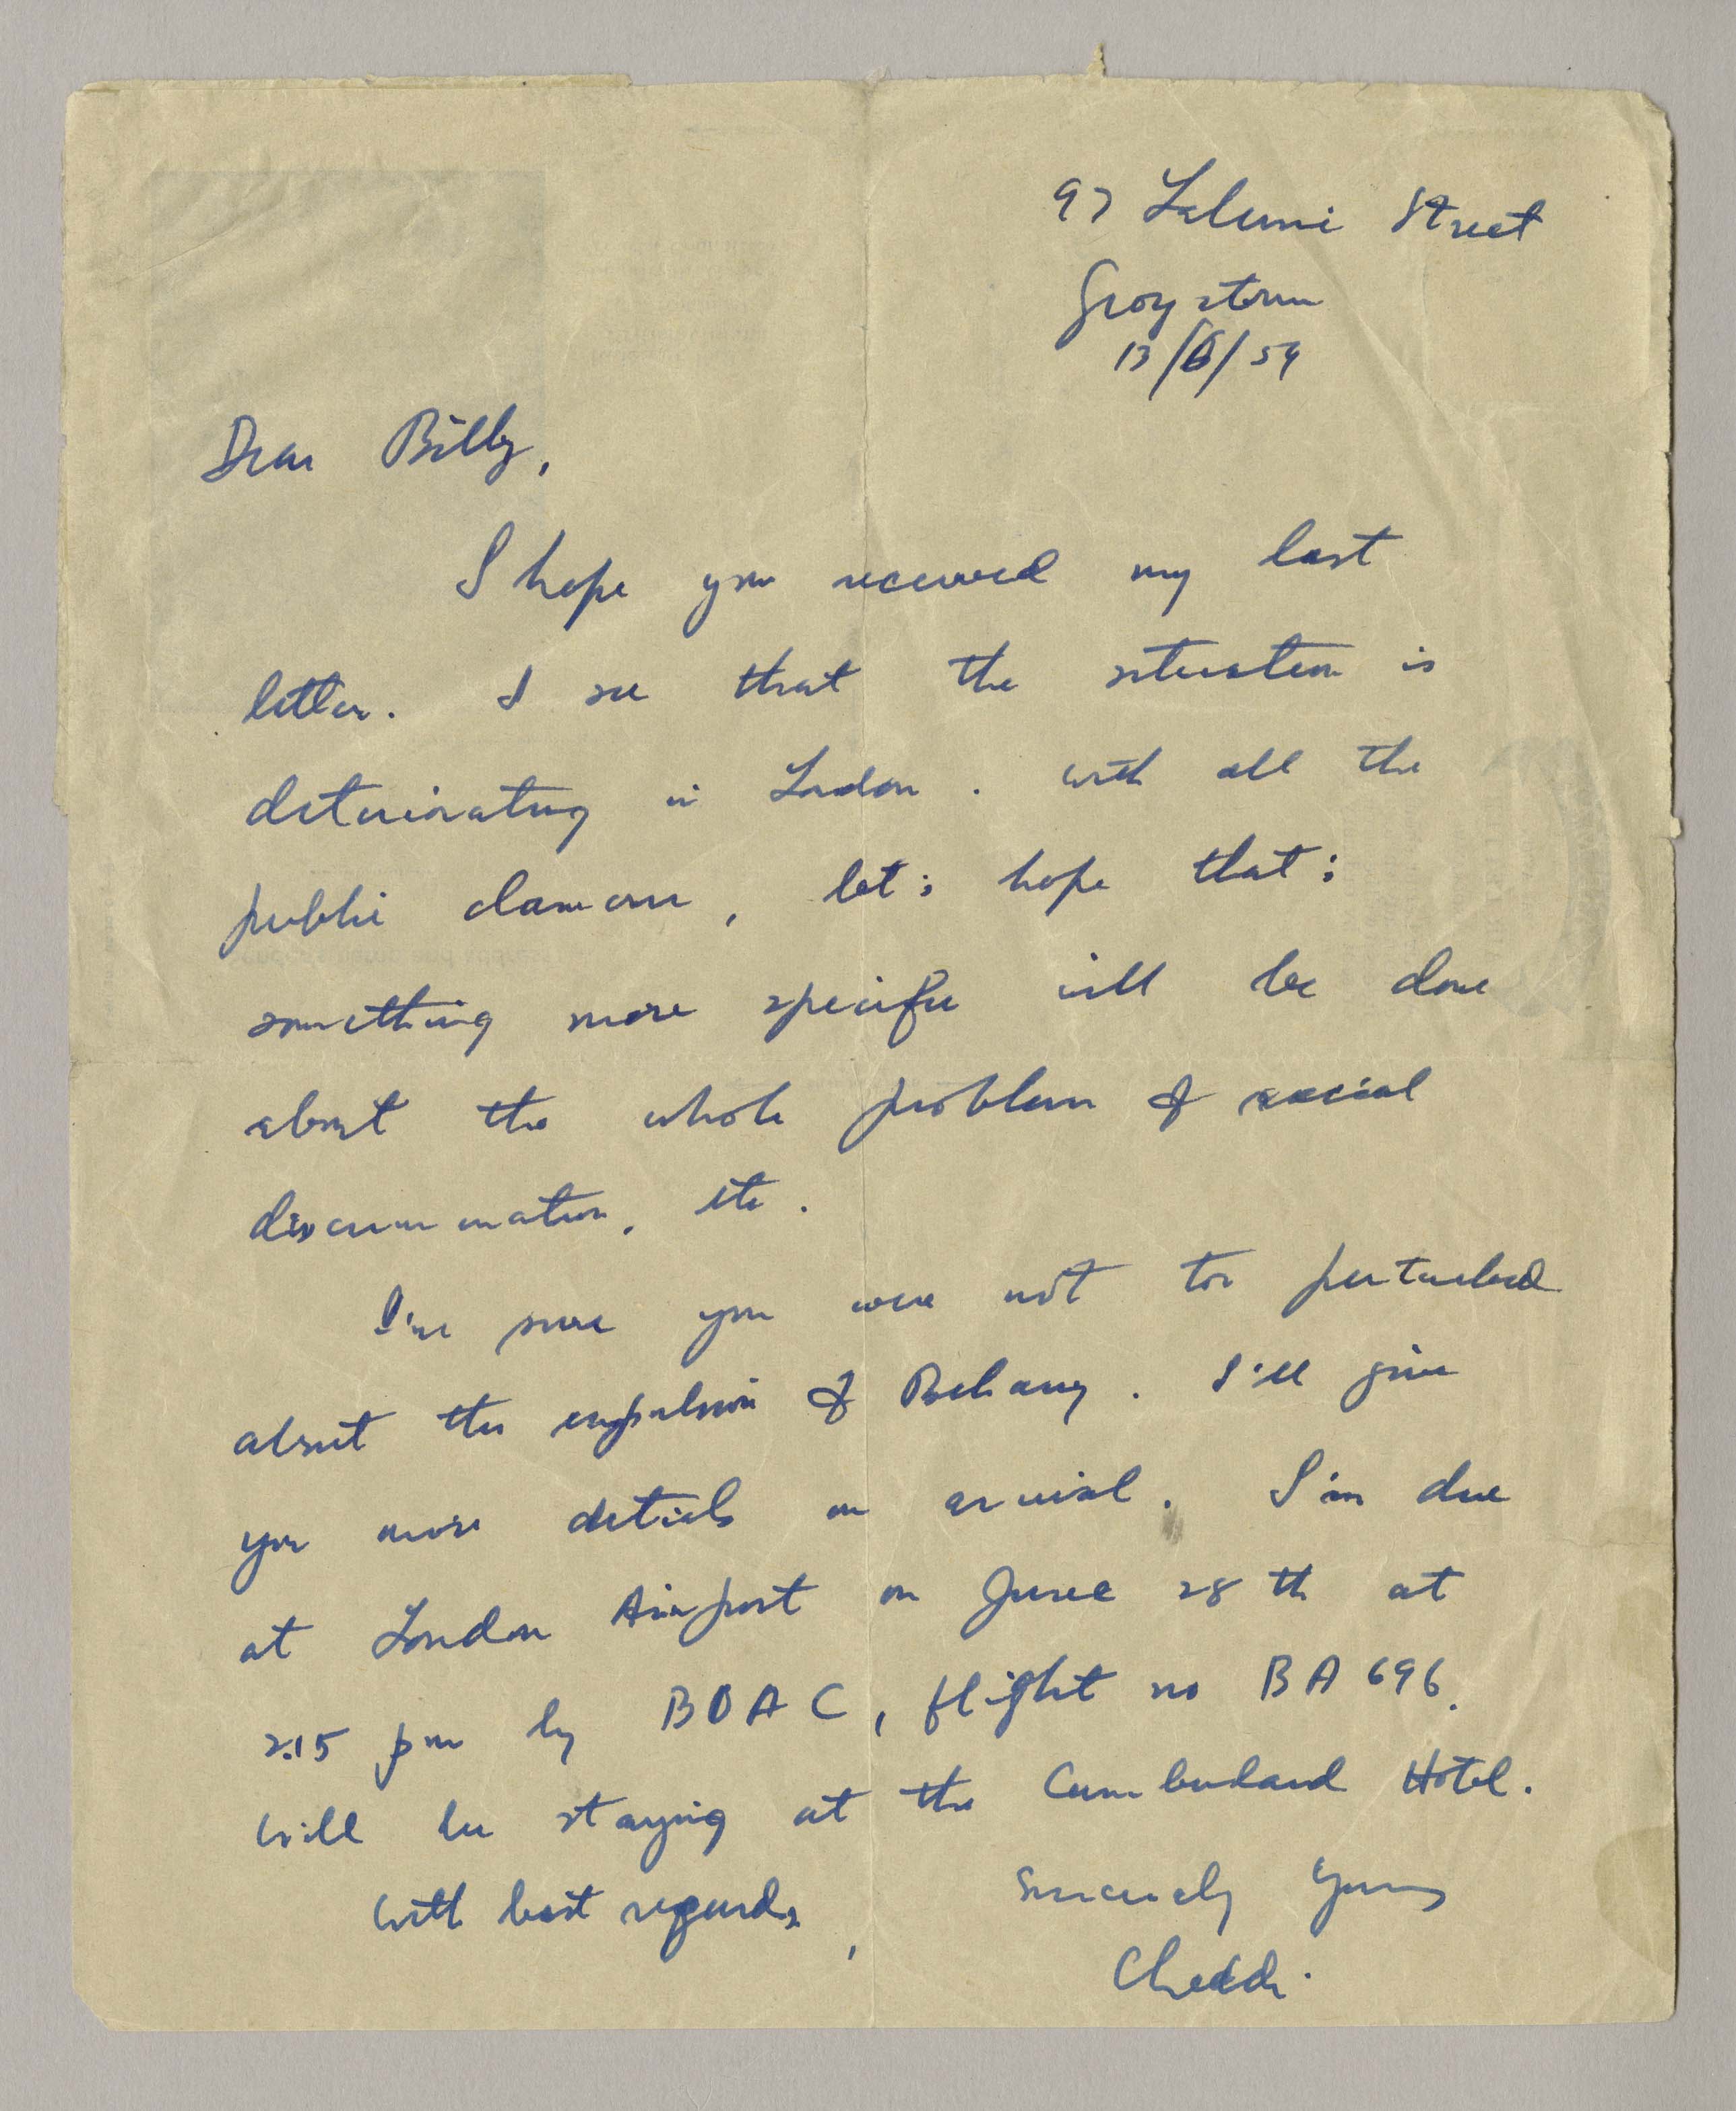 97 Laluni Street
Georgetown
13/6/59
Dear Billy,
I hope you received my last
letter. I see that the situation is
deteriorating in London. With all the
public clamour, let's hope that
something more specific will be done
about the whole problem of racial
discrimination, etc.
I'm sure you were not too perturbed
about the expulsion of Beharry. I'll give
you more details on arrival. I'm due
at London Airport on June 28th at
2.15 pm by BOAC, flight no BA 696.
Will be staying at the Cumberland Hotel.
With best regards,
Sincerely yours
Cheddi.